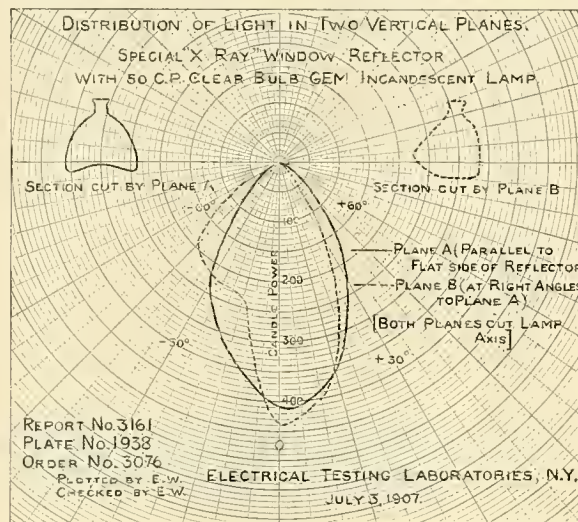 DISTRIBUTION OF LIGHT IN TWO VERTICAL PLANES.
SPECIAL "X RAY" WINDOW REFLECTOR
WITH 50 C.P. CLEAR BULB GEM INCANDESCENT LAMP
SECTION CUT BY PLANE A
SECTION CUT BY PLANE B
-60°
+60°
100
PLANE A (PARALLEL TO
FLAT SIDE OF REFLECTOR
200
PLANE B (AT RIGHT ANGLES
TO PLANE A)
CANDLE POWER
300
[BOTH PLANES CUT LAMP
AXIS]
-30°
+30°
400
0
REPORT NO. 3161
PLATE NO. 1938
ORDER NO. 3076
PLOTTED BY E.W.
CHECKED BY E.W.
ELECTRICAL TESTING LABORATORIES, N.Y.
JULY 3, 1907.